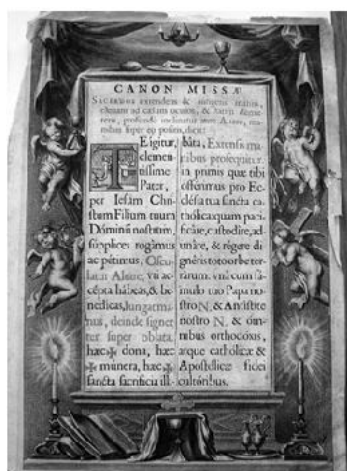 CANON MISSÆ
Sacerdos extendens & iungens manus,
eleuans ad cælum oculos, & statim demit-
tens, profunde inclinatus ante Altare, ma-
nibus super eo positis, dicit:
TE igitur,
clemen-
tissime
Pater,
per Iesum Chri-
stum Filium tuum
Dominũ nostrum,
supplices rogamus
ac petimus, Oscu-
latur Altare, vti ac-
cépta hábeas, & be-
nedicas, Iungat ma-
nus, deinde signet
ter super oblata,
hæc ✠ dona, hæc
✠ munera, hæc ✠
sancta sacrificia ill-
bâta, Extensis ma-
nibus prosequitur.
in primis quæ tibi
offérimus pro Ec-
clésia tua sancta ca-
tholica quam paci-
ficáre, custodíre, ad-
unáre, & régere di-
gnéris toto orbe ter-
rárum. vnà cum fá-
mulo tuo Papa no-
stro N. & Antístite
nostro N. & óm-
nibus orthodóxis,
atque cathólicæ &
Apostólicæ fidei
cultóribus.